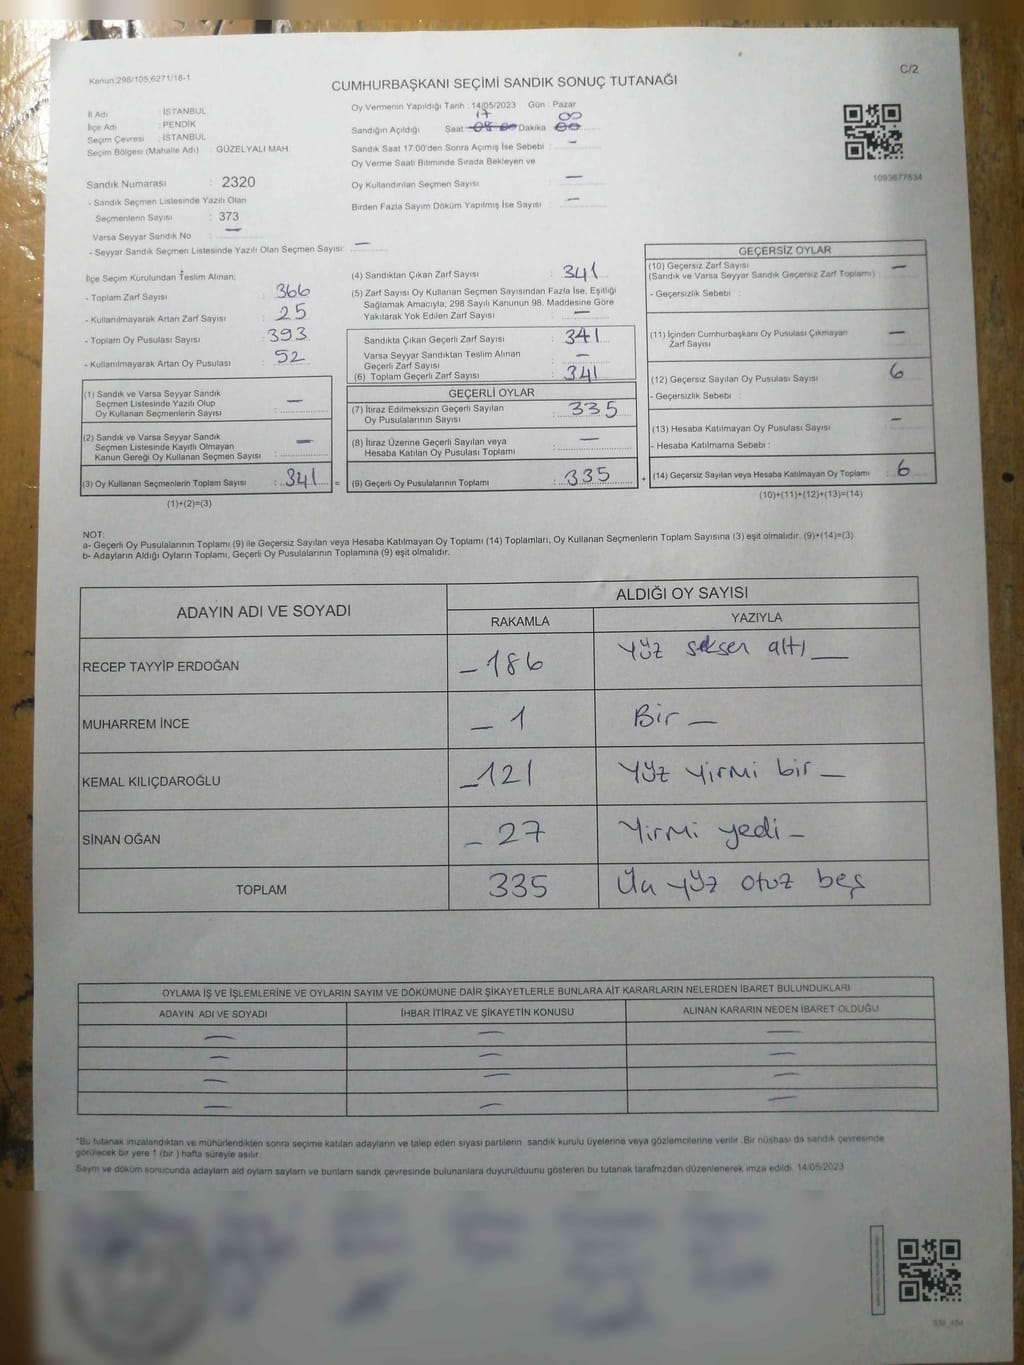 Kanun:298/105,6271/18-1
C/2
CUMHURBAŞKANI SEÇİMİ SANDIK SONUÇ TUTANAĞI
İl Adı : İSTANBUL
İlçe Adı : PENDİK
Seçim Çevresi : İSTANBUL
Seçim Bölgesi (Mahalle Adı) : GÜZELYALI MAH.
Sandık Numarası : 2320
- Sandık Seçmen Listesinde Yazılı Olan
Seçmenlerin Sayısı : 373
Varsa Seyyar Sandık No : —
- Seyyar Sandık Seçmen Listesinde Yazılı Olan Seçmen Sayısı: —
Oy Vermenin Yapıldığı Tarih : 14/05/2023 Gün : Pazar
17 00
Sandığın Açıldığı Saat Dakika
Sandık Saat 17:00'den Sonra Açımış İse Sebebi : —
Oy Verme Saati Bitiminde Sırada Bekleyen ve
Oy Kullandırılan Seçmen Sayısı : —
Birden Fazla Sayım Döküm Yapılmış İse Sayısı : —
1093677534
İlçe Seçim Kurulundan Teslim Alınan;
- Toplam Zarf Sayısı : 366
- Kullanılmayarak Artan Zarf Sayısı : 25
- Toplam Oy Pusulası Sayısı : 393
- Kullanılmayarak Artan Oy Pusulası : 52
(1) Sandık ve Varsa Seyyar Sandık
Seçmen Listesinde Yazılı Olup
Oy Kullanan Seçmenlerin Sayısı : —
(2) Sandık ve Varsa Seyyar Sandık
Seçmen Listesinde Kayıtlı Olmayan
Kanun Gereği Oy Kullanan Seçmen Sayısı : —
(3) Oy Kullanan Seçmenlerin Toplam Sayısı : 341 =
(1)+(2)=(3)
(4) Sandıktan Çıkan Zarf Sayısı : 341
(5) Zarf Sayısı Oy Kullanan Seçmen Sayısından Fazla İse, Eşitliği
Sağlamak Amacıyla; 298 Sayılı Kanunun 98. Maddesine Göre
Yakılarak Yok Edilen Zarf Sayısı : —
Sandıkta Çıkan Geçerli Zarf Sayısı : 341
Varsa Seyyar Sandıktan Teslim Alınan
Geçerli Zarf Sayısı : —
(6) Toplam Geçerli Zarf Sayısı : 341
GEÇERLİ OYLAR
(7) İtiraz Edilmeksizin Geçerli Sayılan
Oy Pusulasının Sayısı : 335
(8) İtiraz Üzerine Geçerli Sayılan veya
Hesaba Katılan Oy Pusulası Toplamı : —
(9) Geçerli Oy Pusulalarının Toplamı : 335 +
GEÇERSİZ OYLAR
(10) Geçersiz Zarf Sayısı
(Sandık ve Varsa Seyyar Sandık Geçersiz Zarf Toplamı) : —
- Geçersizlik Sebebi :
(11) İçinden Cumhurbaşkanı Oy Pusulası Çıkmayan
Zarf Sayısı : —
(12) Geçersiz Sayılan Oy Pusulası Sayısı : 6
- Geçersizlik Sebebi :
(13) Hesaba Katılmayan Oy Pusulası Sayısı : —
- Hesaba Katılmama Sebebi :
(14) Geçersiz Sayılan veya Hesaba Katılmayan Oy Toplamı : 6
(10)+(11)+(12)+(13)=(14)
NOT:
a- Geçerli Oy Pusulalarının Toplamı (9) ile Geçersiz Sayılan veya Hesaba Katılmayan Oy Toplamı (14) Toplamları, Oy Kullanan Seçmenlerin Toplam Sayısına (3) eşit olmalıdır. (9)+(14)=(3)
b- Adayların Aldığı Oyların Toplamı, Geçerli Oy Pusulalarının Toplamına (9) eşit olmalıdır.
ADAYIN ADI VE SOYADI ALDIĞI OY SAYISI
RAKAMLA YAZIYLA
RECEP TAYYİP ERDOĞAN — 186 Yüz seksen altı —
MUHARREM İNCE — 1 Bir —
KEMAL KILIÇDAROĞLU — 121 Yüz yirmi bir —
SİNAN OĞAN — 27 Yirmi yedi —
TOPLAM 335 Üç yüz otuz beş
OYLAMA İŞ VE İŞLEMLERİNE VE OYLARIN SAYIM VE DÖKÜMÜNE DAİR ŞİKAYETLERLE BUNLARA AİT KARARLARIN NELERDEN İBARET BULUNDUKLARI
ADAYIN ADI VE SOYADI İHBAR İTİRAZ VE ŞİKAYETİN KONUSU ALINAN KARARIN NEDEN İBARET OLDUĞU
— — —
— — —
— — —
— — —
*Bu tutanak imzalandıktan ve mühürlendikten sonra seçime katılan adayların ve talep eden siyasi partilerin sandık kurulu üyelerine veya gözlemcilerine verilir. Bir nüshası da sandık çevresinde
görülecek bir yere 1 (bir ) hafta süreyle asılır.
Sayım ve döküm sonucunda adayların ald oyların sayların ve bunların sandk çevresinde bulunanlara duyurulduunu gösteren bu tutanak tarafmzdan düzenlenerek imza edildi. 14/05/2023